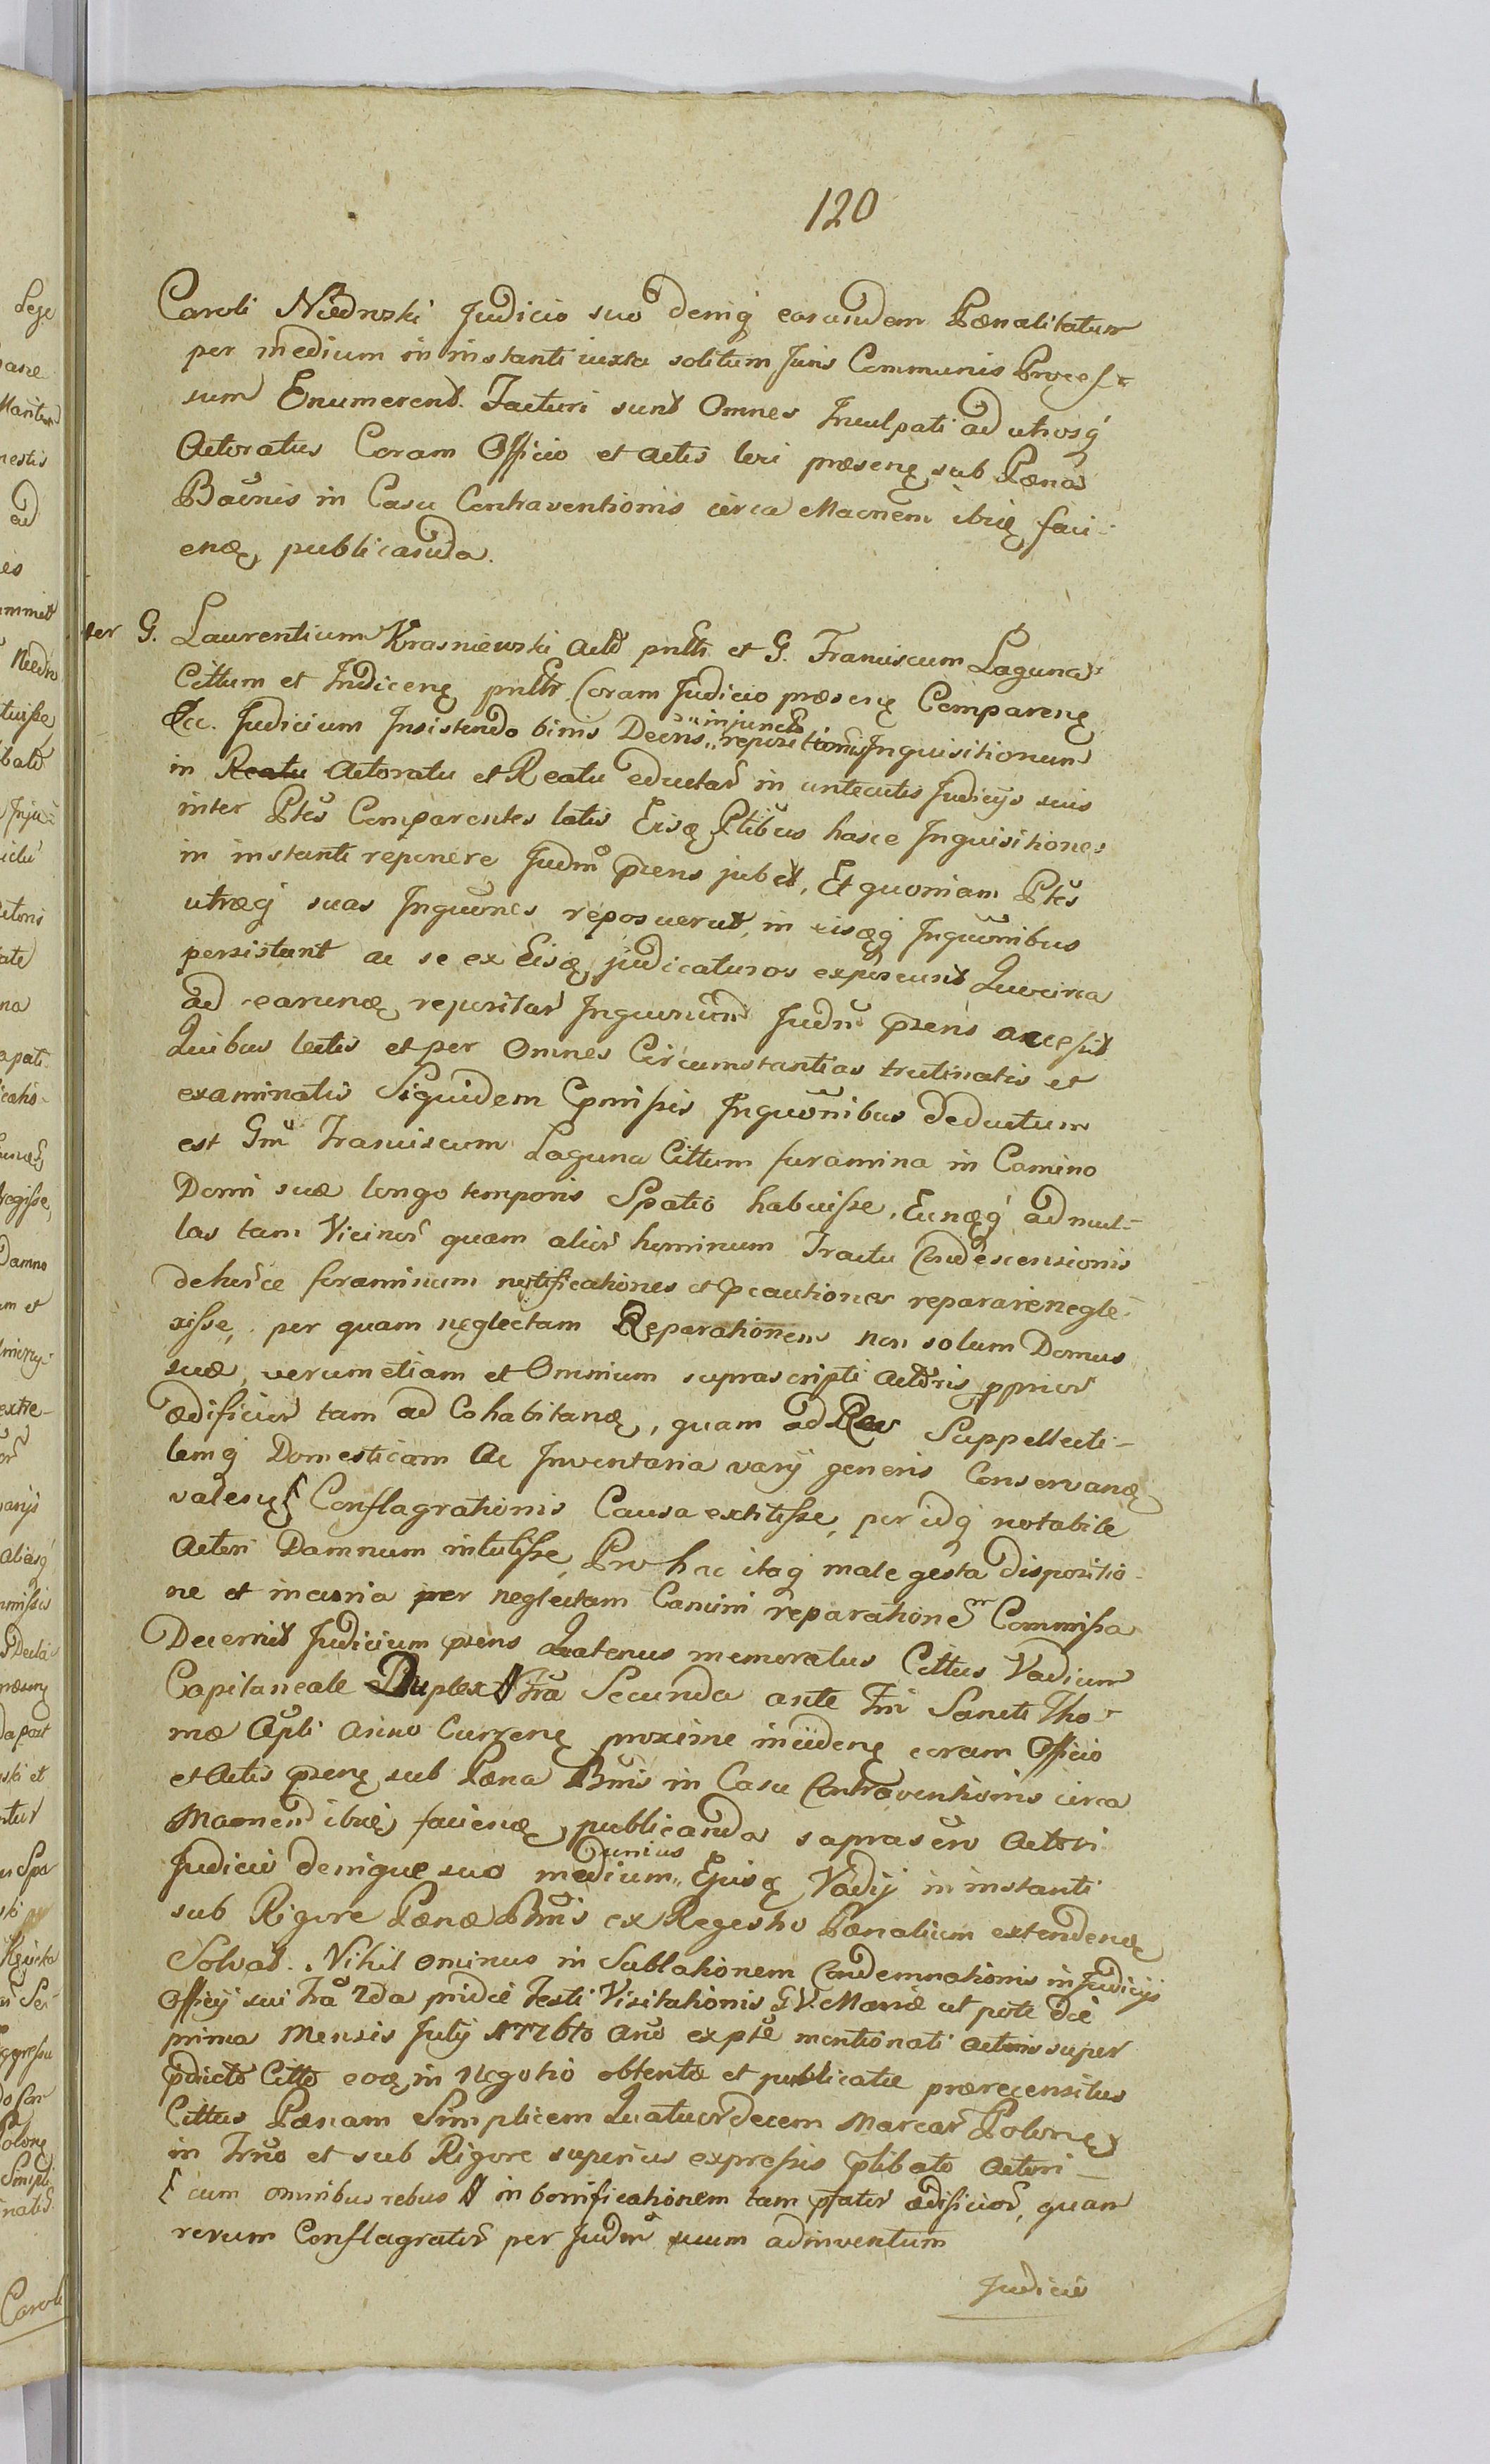 120
Caroli Niedwski Judicio suo deniq̃ earundem Pænalitatum
per medium in instanti iuxta solitum Juris Communis Proces-
sum Enumerent. Facturi sunt Omnes Inculpati ad utrosq́
Actoratus Coram Officio et Actis loci præsenę sub Pæna
Bãnis in Casu Contraventionis circa Macnem ibidę faci-
enę publicanda.
ter G. Laurentium Krasniewski Actõ pñltr et G. Franciscum Laguna
Cittum et Indicenę pñltr Coram Judicio præsenę Comparenę
Etc. Judicium Insistendo binis Decrũs „ repositionis Inquisitionum
injunct
in Reatu Actoratu et Reatu eductar̃ in antecutis Judicijs suis
inter Ptes̃ Comparentes latis Eisdę Ptibus̃ hasce Inquisitiones
in instanti reponere Judm̃ p̃rens jubet, Et quoniam Ptes̃
utræq́ suas Inquones̃ reposuerunt, in eisdęq́ Inquonibus̃
persistunt ac se ex Eisdę judicaturos exposcunt Quocirca
ad earundę reposita͠r Inquonum̃ Judm̃ p̃rens accessit
Quibus lectis et per Omnes Circumstantias trutinatis et
examinatis Siquidem Cp̃missis Inquonibus̃ deductum
est Gm̃ Franciscum Laguna Cittum foramina in Camino
Domi suæ longo temporis Spatio habuisse, Eundęq́ ad mul-
tas tam Vicinor̃ quam alior̃ hominum Tractu Condescensionis
dehisce foraminum notificationes et p̃cautiones reparare negle-
xisse, per quam neglectam Reparationem non solum Domus
suæ, verum etiam et Omnium suprascripti Actoris̃ pprior̃
ædificior̃ tam ad Cohabitandę, quam ad Res Suppellecti-
lemq́ Domesticam Ac Inventaria varij generis Conservandę
valescę Conflagrationis Causa extitisse, per idq́ notabile
Actori Damnum intulisse, Pro hac itaq́ male gesta dispositio-
ne et incuria per neglectam Camini reparationem Commissa
Decernit Judicium p̃rens Quatenus memoratus Cittus Vadium
Capitaneale Duplex Fra͠ Secunda ante Fm̃ Sancti Tho-
mæ Apli͠ Anno Currenę proxime incidenę coram Officio
et Actis p̃renę sub Pæna Bnis͠ in Casu Contraventionis circa
Macnem͠ ibidę faciendę publicanda suprascr͠o Actori
Judicio denique suo medium „ Ejusdę Vadij in instanti
unius
sub Rigore Pænæ Bnis͠ ex Regestro Pænalium extendendę
Solvat. Nihil ominus in Sublationem Condemnationis in Judicijs
Officij sui Fra͠ 2da pridie Festi Visitationis G V. Mariæ ut pote die
prima Mensis Julij 1776to Ano͠ ex pte͠ mentionati Actoris super
p̃dicto Citto eodę in negotio obtentæ et publicatæ prærecensitus
Cittus Pænam Simplicem Quatuordecem Marcar̃ Polonę
in Trno͠ et sub Rigore superius expressis p̃libato Actori –
cum omnibus rebus in bonificationem tam p̃fator̃ ædificior̃, quam
rerum Conflagrator̃ per Judm̃ suum adinventum
Judicio